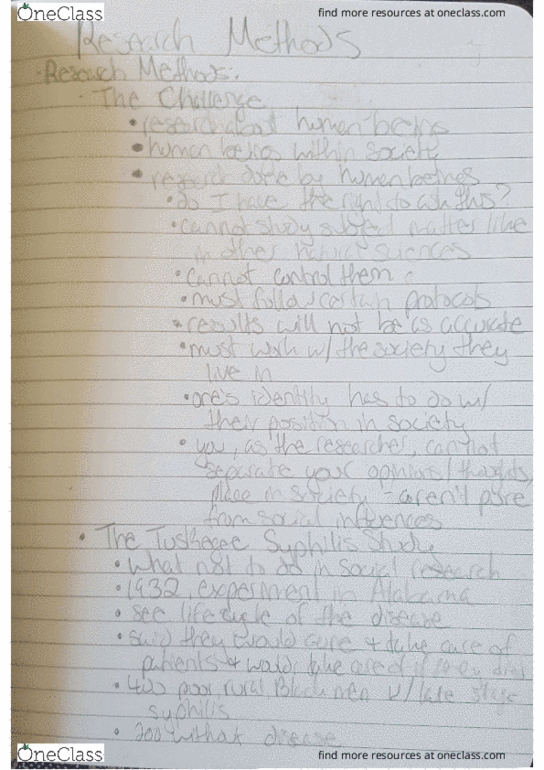 OneClass
find more resources at oneclass.com
Research Methods
· Research Methods:
· The Challenge
• research about human beings
• human beings within society
• research done by human beings
• do I have the right to ask this?
• cannot study subject matter like
in other natural sciences
• cannot control them
• must follow certain protocols
• results will not be as accurate
• must work w/ the society they
live in
• one's identity has to do w/
their position in society
• you, as the researcher, cannot
separate your opinions/thoughts,
place in society - aren't pure
from social influences
• The Tuskegee Syphilis Study
• What not to do in social research
• 1932, experiment in Alabama
• see life cycle of the disease
• said they would cure + take care of
patients + would take care of if
• 400 poor, rural, Black men w/ late stage
syphilis
• 200 without disease
OneClass
find more resources at oneclass.com